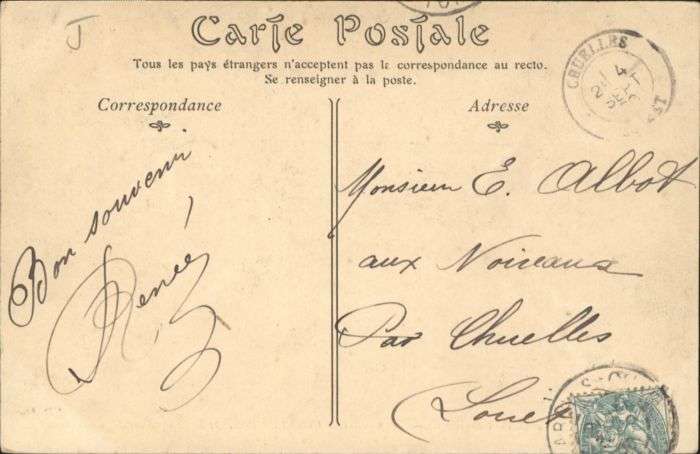 J
Carte Postale
Tous les pays étrangers n'acceptent pas la correspondance au recto.
Se renseigner à la poste.
Correspondance
Adresse
Bon souvenir
Renée
Monsieur E. Albot
aux Noiseaux
Par Chuelles
Loiret
CHUELLES
4
SEPT